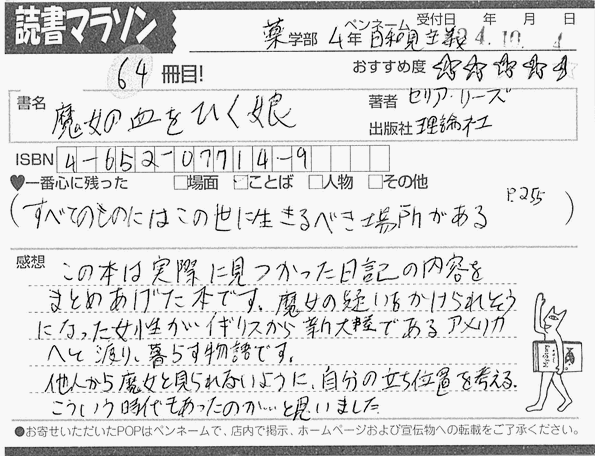 読書マラソン
薬学部 4年 ペンネーム 日和見主義 受付日 年 月 日
64冊目! おすすめ度 ☆☆☆☆☆
書名 魔女の血をひく娘
著者 セリア・リーズ
出版社 理論社
ISBN 4-652-07714-9
♥一番心に残った □場面 ☑ことば □人物 □その他
(すべてのものにはこの世に生きるべき場所がある P.255)
感想
この本は実際に見つかった日記の内容を
まとめあげた本です。魔女の疑いをかけられそう
になった女性がイギリスから新大陸であるアメリカ
へと渡り、暮らす物語です。
他人から魔女と見られないように、自分の立ち位置を考える。
こういう時代もあったのか…と思いました
●お寄せいただいたPOPはペンネームで、店内で掲示、ホームページおよび宣伝物への転載をご了承ください。